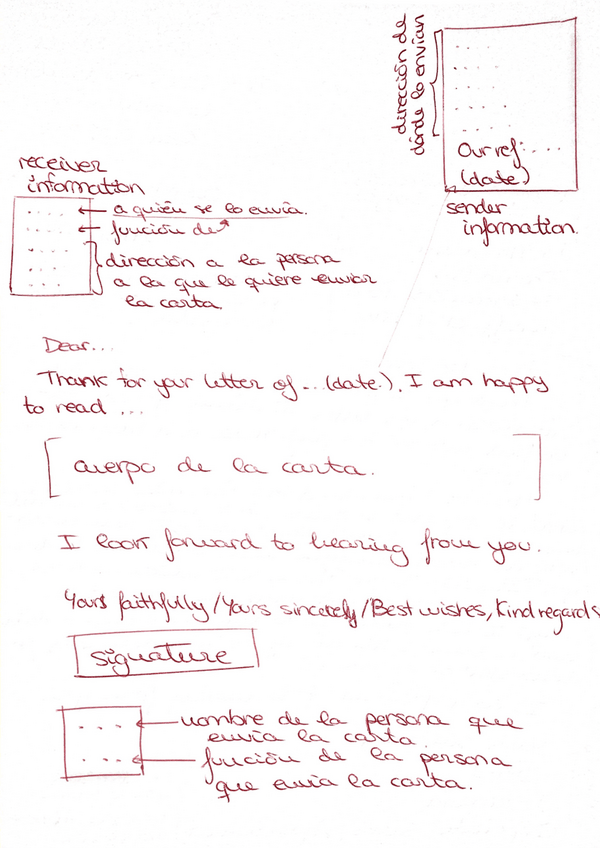 dirección de
dónde lo envían
Our ref: ....
(date)
sender
information.
receiver
information
a quién se lo envía.
función de
dirección a la persona
a la que le quiere enviar
la carta.
Dear...
Thank for your letter of ... (date). I am happy
to read ...
cuerpo de la carta.
I look forward to hearing from you.
Yours faithfully/Yours sincerely/Best wishes, Kind regards
signature
nombre de la persona que
envía la carta.
función de la persona
que envía la carta.